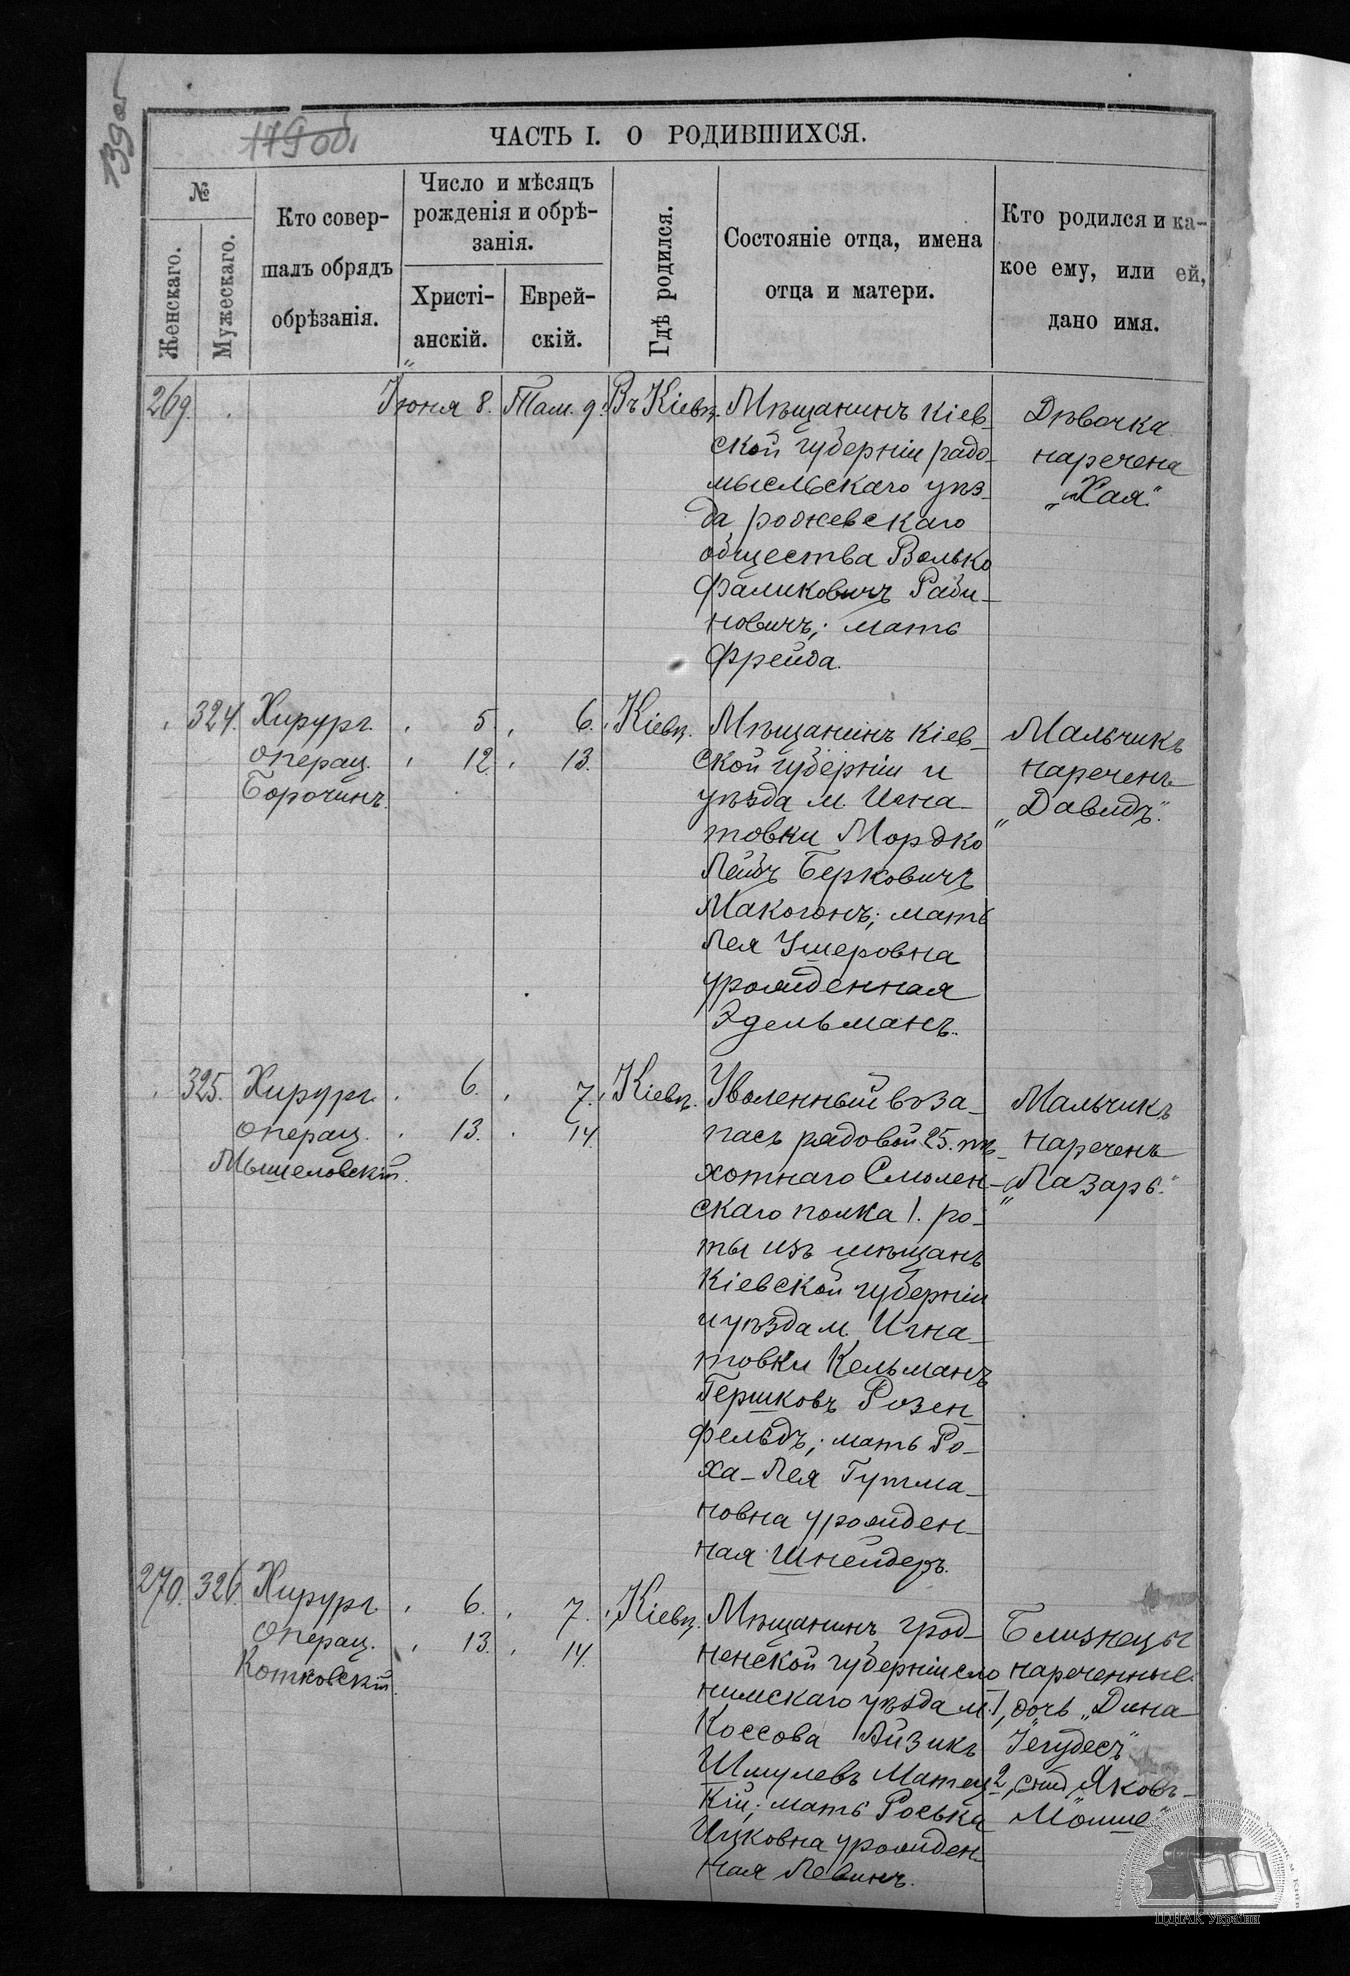 139 об
179 об.
ЧАСТЬ I. О РОДИВШИХСЯ.
№
Женскаго.
Мужескаго.
Кто совер-
шалъ обрядъ
обрѣзанія.
Число и мѣсяцъ
рожденія и обрѣ-
занія.
Христі-
анскій.
Еврей-
скій.
Гдѣ родился.
Состояніе отца, имена
отца и матери.
Кто родился и ка-
кое ему, или ей,
дано имя.
269.
Іюня 8.
Там. 9.
Въ Кіевѣ.
Мѣщанинъ Кіев-
ской губерніи радо-
мысльскаго уѣз-
да рожевскаго
общества Волько
Фаликовичъ Раби-
новичъ; мать
Фрейда.
Дѣвочка
наречена
„Хая“.
324.
Хирург.
операц.
Борочинъ.
5.
12.
6.
13.
Кіевѣ.
Мѣщанинъ Кіев-
ской губерніи и
уѣзда м. Игна-
товки Мордко
Лейбъ Берковичъ
Макогонъ; мать
Лея Ушеровна
урожденная
Эдельманъ.
Мальчикъ
нареченъ
„Давидъ“.
325.
Хирург.
операц.
Мышеловскій.
6.
13.
7.
14.
Кіевѣ.
Уволенный въ за-
пасъ рядовой 25. пѣ-
хотнаго Смолен-
скаго полка 1. ро-
ты изъ мѣщанъ
Кіевской губерніи
и уѣзда м. Игна-
товки Кельманъ
Гершковъ Розен
фельдъ; мать Ро-
ха-Лея Гутма-
новна урожден-
ная Шнейдеръ.
Мальчикъ
нареченъ
„Лазарь“.
270.
326.
Хирург.
операц.
Котковскій.
6.
13.
7.
14.
Кіевѣ.
Мѣщанинъ грод-
ненской губерніи сло
нимскаго уѣзда м.
Коссова Айзикъ
Шмулевъ Матец-
кій; мать Роська
Ицковна урожден-
ная Левинъ.
Близнецы
нареченные
1, дочь „Дина-
Іегудесъ“
2, сынъ „Яковъ-
Мошше“
ЦДІАК України